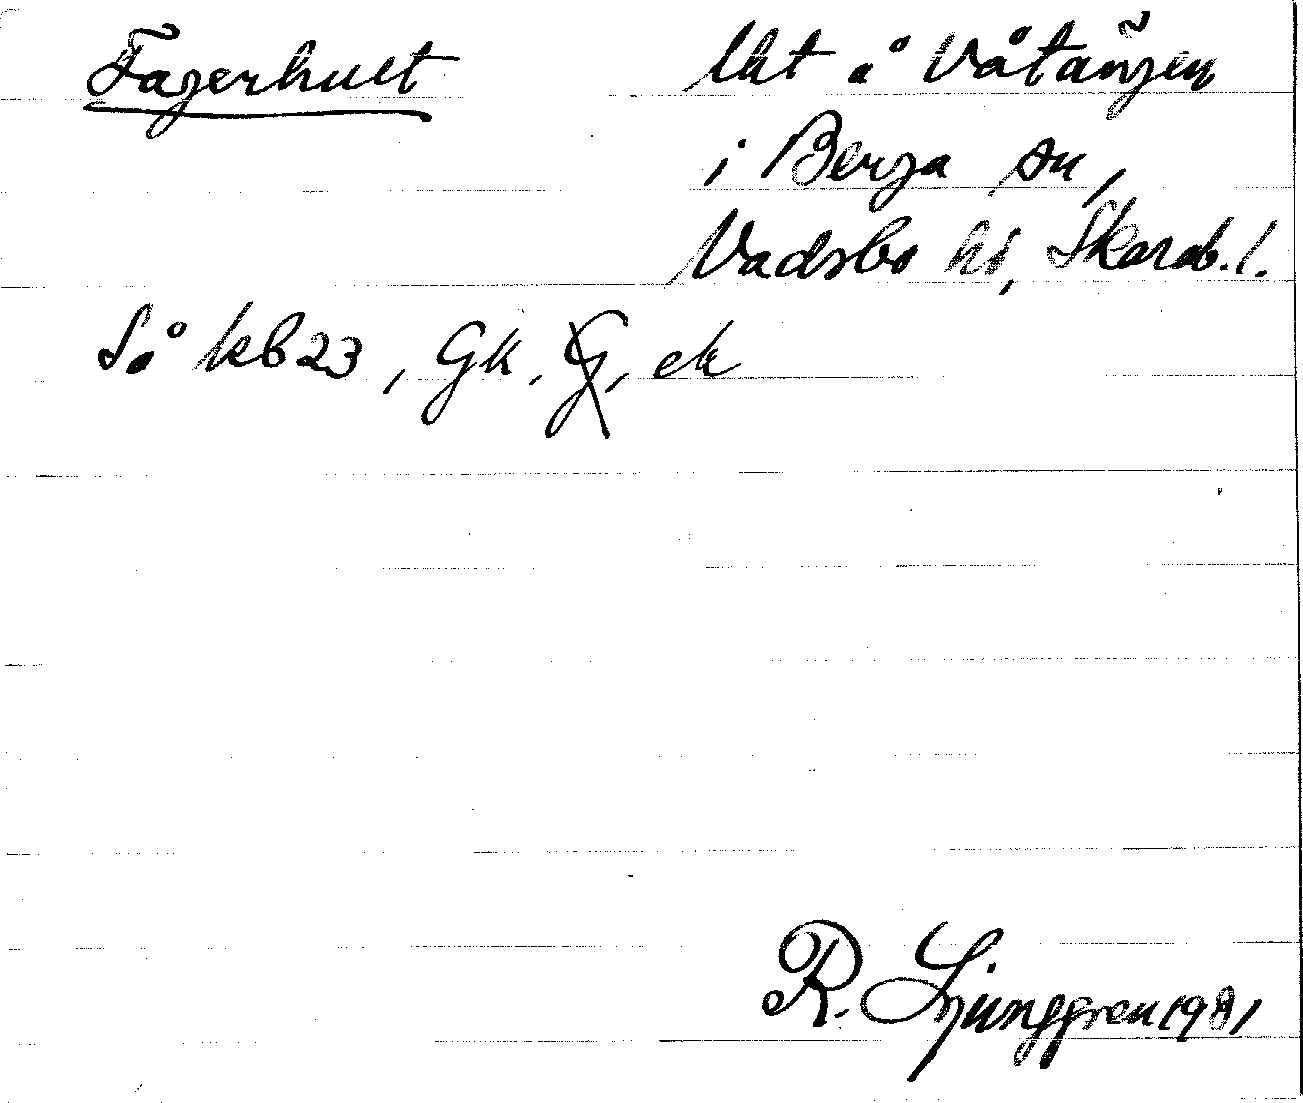 Fagerhult
lht å Våtängen
i Berga sn,
Vadsbo hd, Skarab.l.
Så kb 23, Gk, G, ek
R. Ljunggren 1981